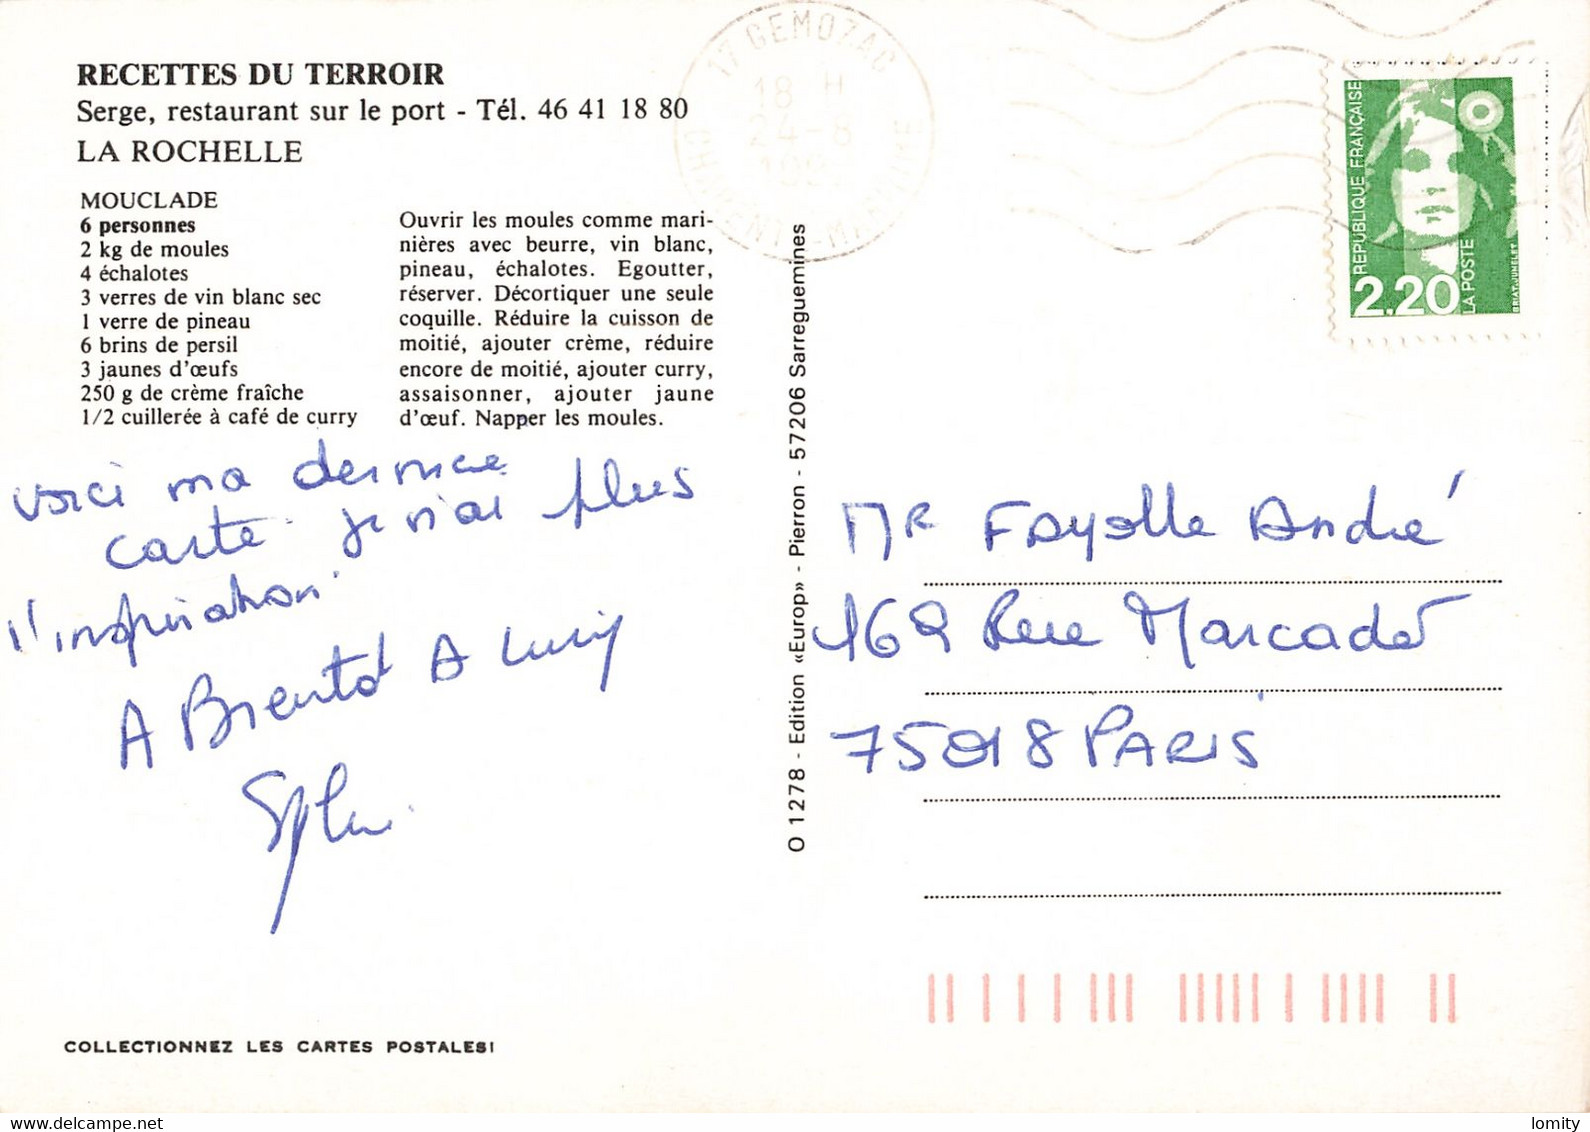 RECETTES DU TERROIR
Serge, restaurant sur le port - Tél. 46 41 18 80
LA ROCHELLE
MOUCLADE
6 personnes
2 kg de moules
4 échalotes
3 verres de vin blanc sec
1 verre de pineau
6 brins de persil
3 jaunes d'œufs
250 g de crème fraîche
1/2 cuillerée à café de curry
Ouvrir les moules comme mari-
nières avec beurre, vin blanc,
pineau, échalotes. Egoutter,
réserver. Décortiquer une seule
coquille. Réduire la cuisson de
moitié, ajouter crème, réduire
encore de moitié, ajouter curry,
assaisonner, ajouter jaune
d'œuf. Napper les moules.
voici ma dernière
carte je n'ai plus
d'inspiration
A Bientôt A Lundi
COLLECTIONNEZ LES CARTES POSTALES!
O 1278 - Edition «Europ» - Pierron - 57206 Sarreguemines
17 GEMOZAC
18 H
24-8
CHARENTE-MARITIME
REPUBLIQUE FRANÇAISE
2,20
LA POSTE
BRIAT-JUMELET
MR Fayolle André
162 Rue Marcadet
75018 PARIS
lomity